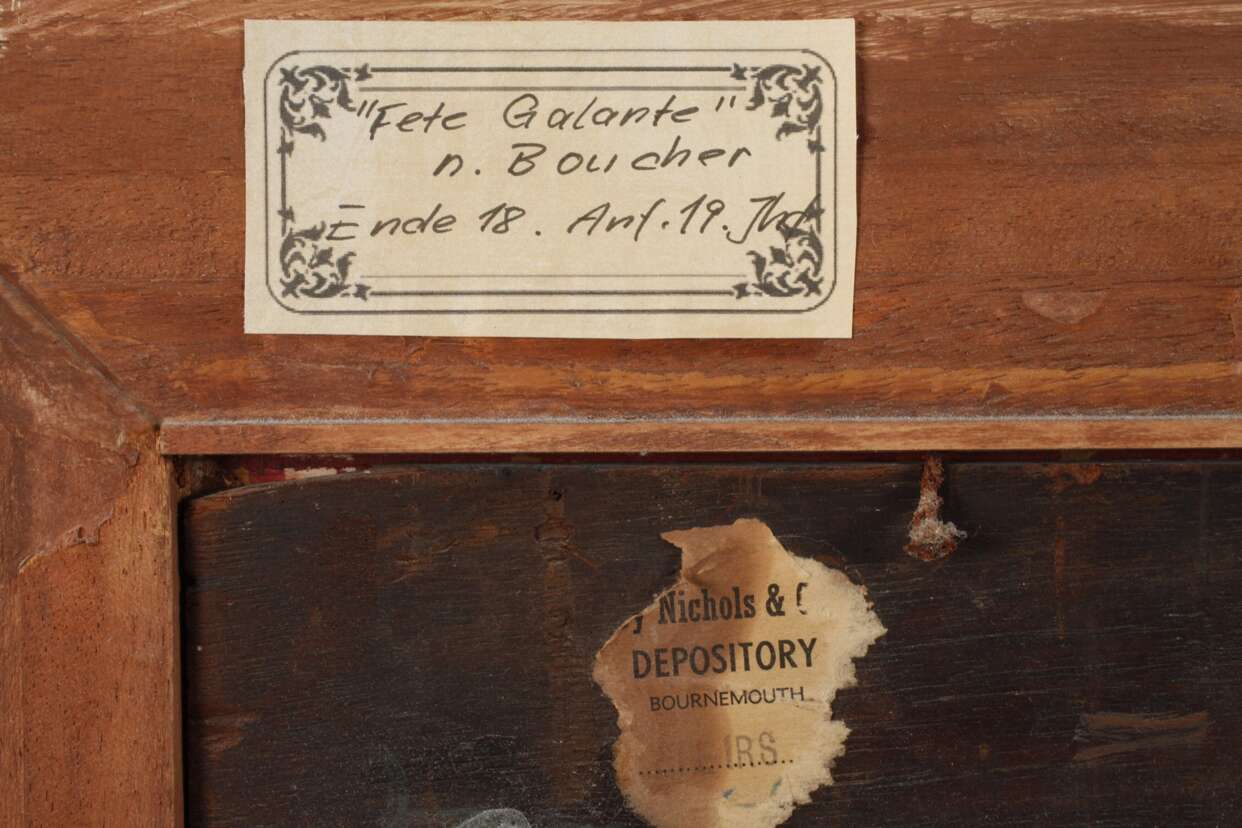 "Fete Galante"
n. Boucher
Ende 18. Anf. 19. Jhd
y Nichols &
DEPOSITORY
BOURNEMOUTH